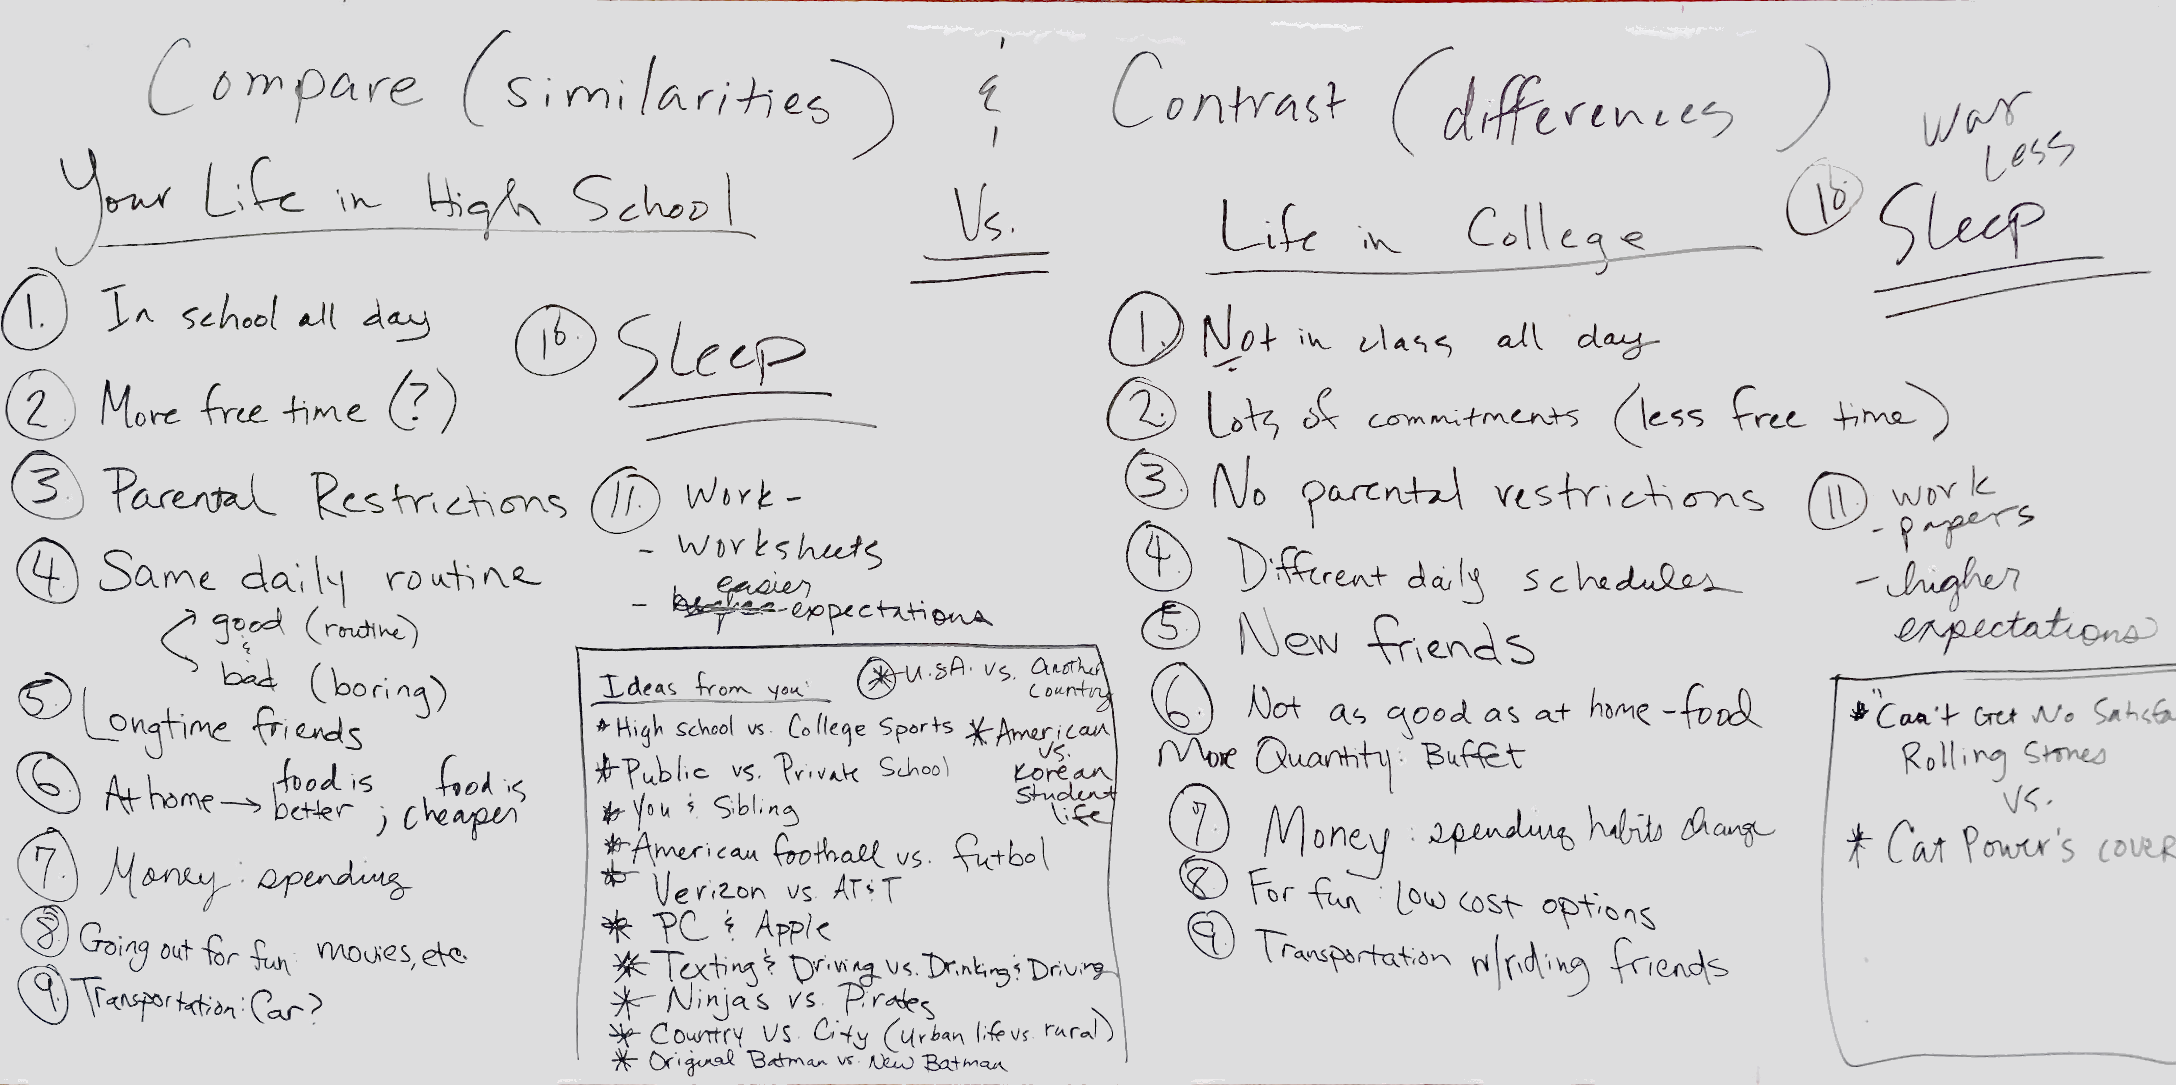 Compare (similarities) & Contrast (differences)
Your Life in High School Vs. Life in College
1. In school all day
2 More free time (?)
3. Parental Restrictions
4 Same daily routine
good (routine)
&
bad (boring)
5. Longtime friends
6 At home → food is better ; food is cheaper
7. Money: spending
8. Going out for fun: movies, etc.
9. Transportation: Car?
10. Sleep
11. Work -
- worksheets
- easier expectations
Ideas from you:
* U.S.A. vs. Another Country
* High school vs. College Sports
* American vs. Korean student life
* Public vs. Private School
* You & Sibling
* American football vs. futbol
* Verizon vs. AT&T
* PC & Apple
* Texting & Driving vs. Drinking & Driving
* Ninjas vs. Pirates
* Country vs. City (urban life vs. rural)
* Original Batman vs. New Batman
1. Not in class all day
2. Lots of commitments (less free time)
3. No parental restrictions
4. Different daily schedules
5. New friends
6. Not as good as at home - food
More Quantity: Buffet
7. Money: spending habits change
8. For fun: low cost options
9. Transportation w/riding friends
10 way less
Sleep
11 work
- papers
- higher
expectations
* "Can't Get No Satisfa
Rolling Stones
vs.
* Cat Power's cover